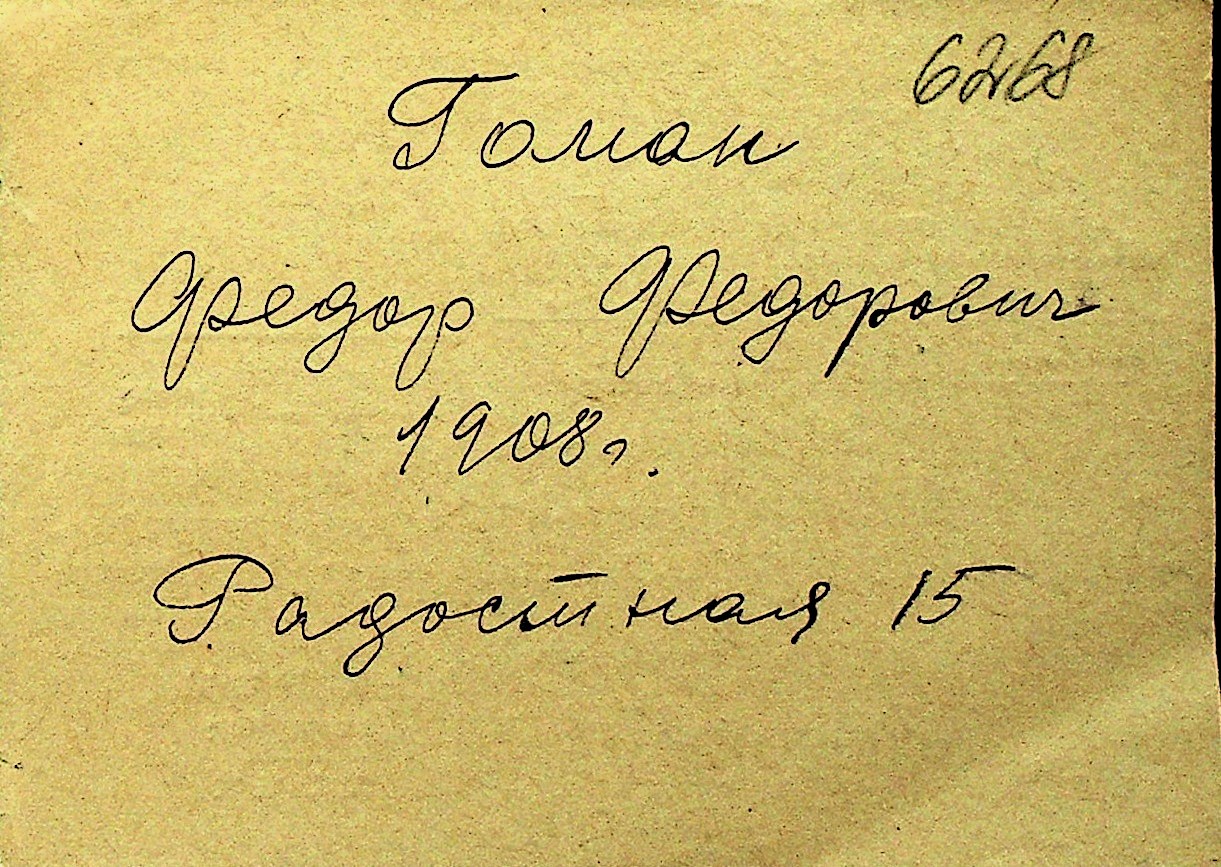 6268
Гоман
Федор Федорович
1908г.
Радостная 15